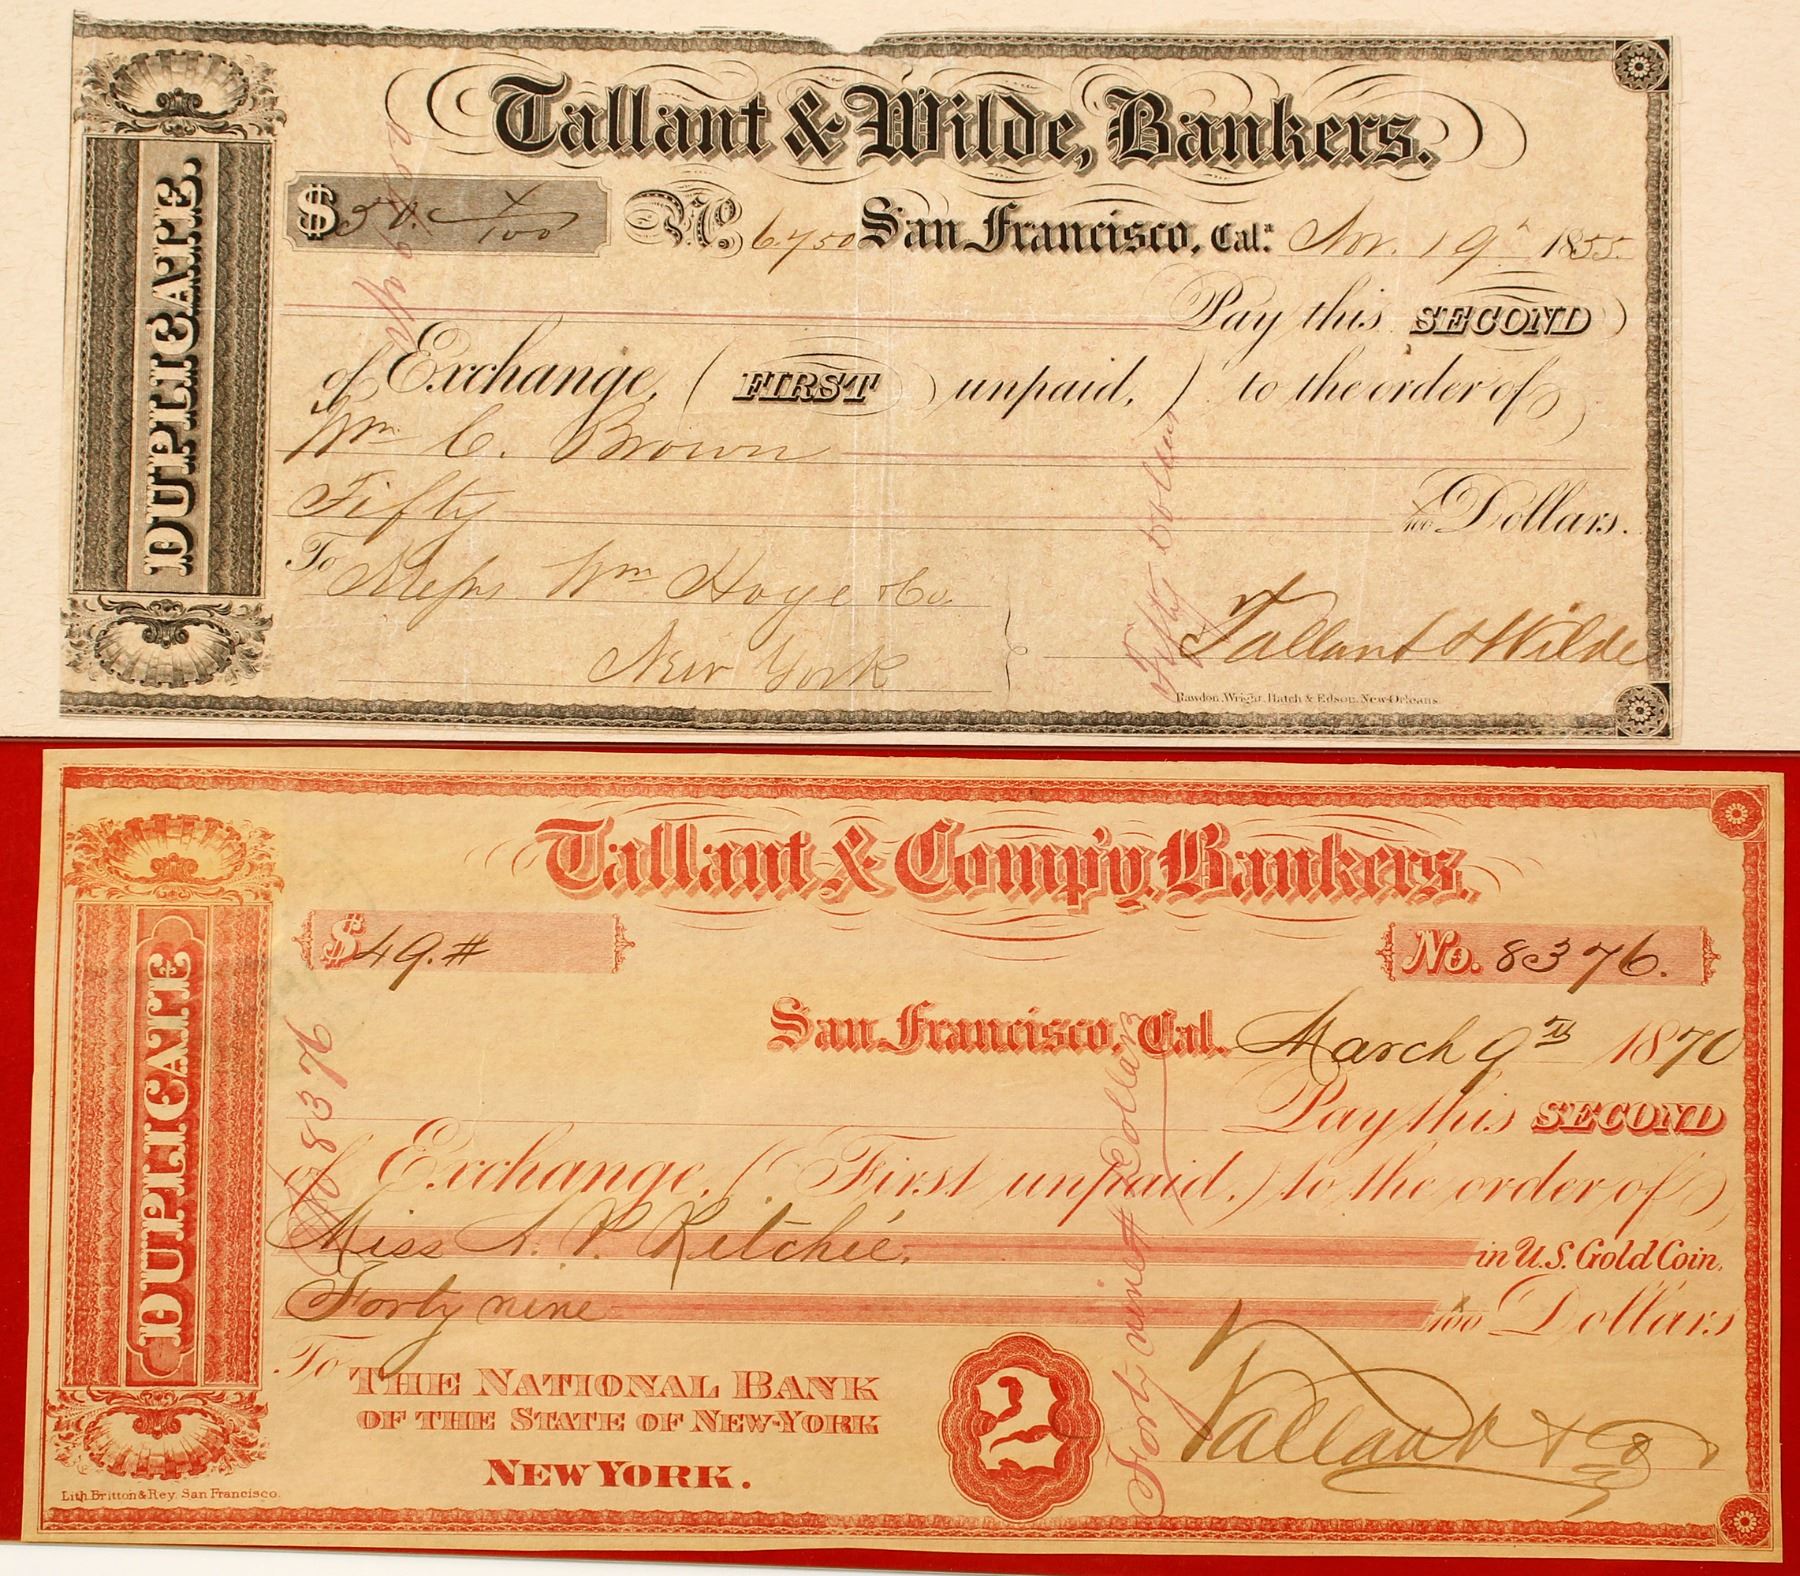 Tallant & Wilde, Bankers.
DUPLICATE.
$ 50. x/100 No. 6750 San Francisco, Cal.ª Nov. 19th 1855.
Pay this SECOND
of Exchange, (FIRST unpaid,) to the order of
Wm C. Brown
Fifty x/100 Dollars.
To Messrs Wm Hoge & Co.
New York
Tallant & Wilde
Fifty Dollars
Rawdon, Wright, Hatch & Edson, New-Orleans.
Tallant & Comp'y. Bankers.
DUPLICATE
$ 49.# No. 8376.
San Francisco, Cal. March 9th 1870
Pay this SECOND
of Exchange, (First unpaid,) to the order of
Miss A. P. Ritchie, in U.S. Gold Coin,
Forty nine x/100 Dollars
To THE NATIONAL BANK
OF THE STATE OF NEW-YORK
NEW YORK.
2
Tallant & Co
No 8376
Forty nine # Dollars
Lith. Britton & Rey. San Francisco.